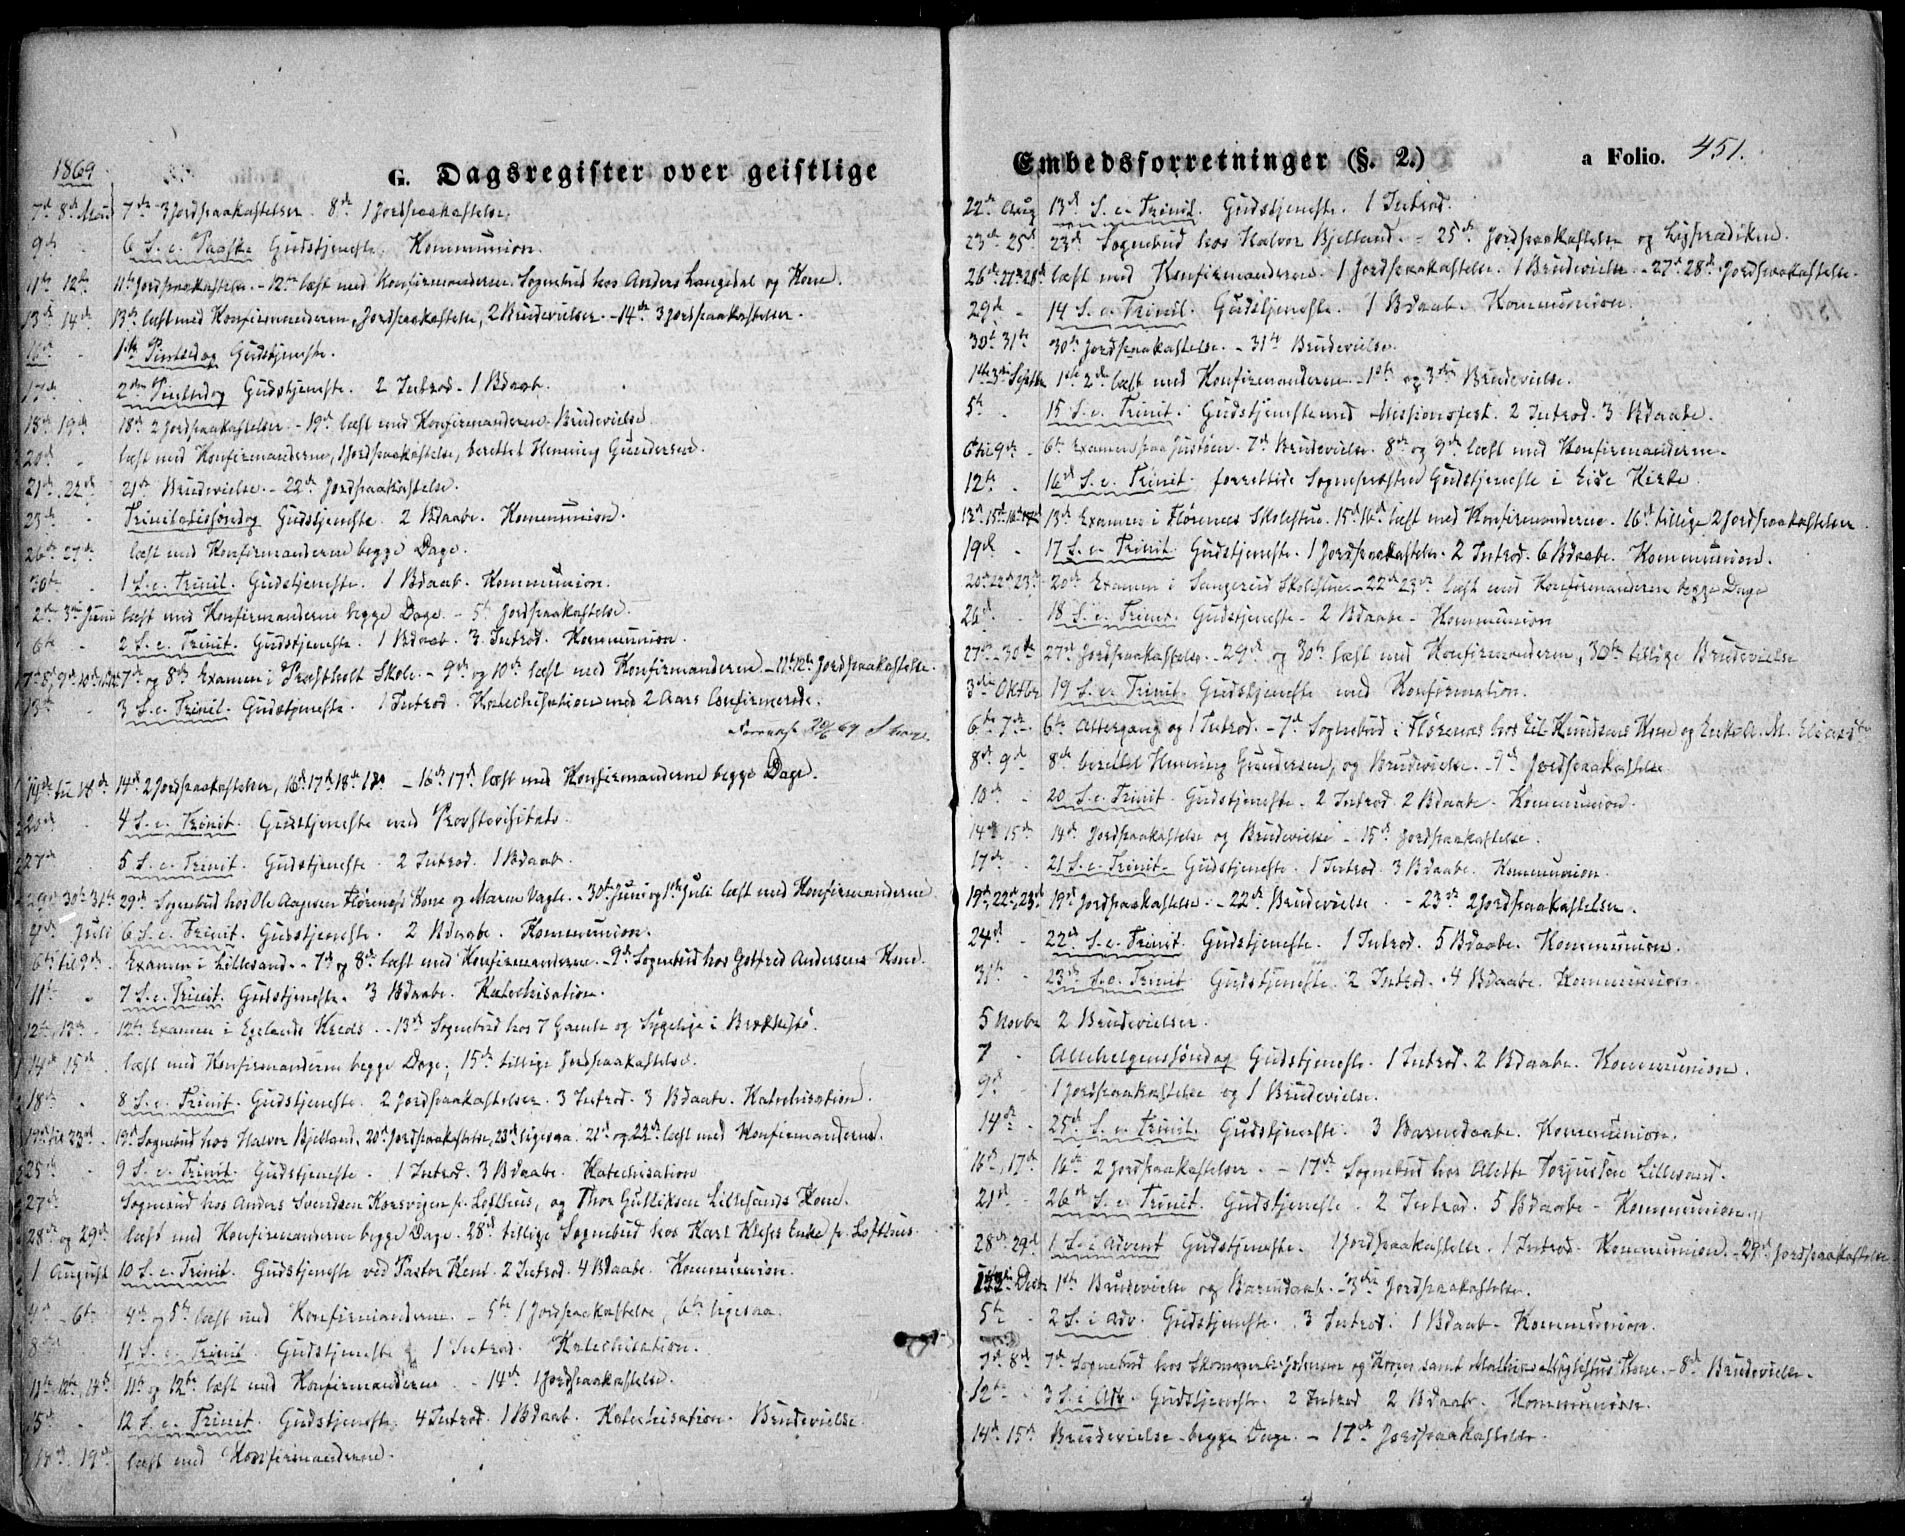 1869
G. Dagsregister over geistlige
7de 8de Mai 7de 3 Jordpaakastelser. 8de 1 Jordpaakastelse.
9de 6 S. e. Paaske Gudstjeneste. Kommunion.
11te 12te 11te Jordpaakastelse. - 12te læst med Konfirmanderne. Sognebud hos Anders Langedal og Kone.
13de 14de 13de læst med Konfirmanderne, Jordpaakastelse, 2 Brudevielser. - 14de 3 Jordpaakastelser.
16de 1ste Pintsedag Gudstjeneste.
17de 2den Pintsedag Gudstjeneste. 2 Introd. 1 Bdaab.
18de, 19de 18de 2 Jordpaakastelser. - 19de læst med Konfirmanderne. Brudevielse
20de læst med Konfirmanderne, 1 Jordpaakastelse, berettet Henning Gundersen.
21de, 22de 21de Brudevielse. - 22de Jordpaakastelse.
23de Trinitatissøndag Gudstjeneste. 2 Bdaabe. Kommunion.
26de 27de læst med Konfirmanderne begge Dage.
30te 1 S. e. Trinit. Gudstjeneste. 1 Bdaab. Kommunion.
2den 3die Juni læst med Konfirmanderne begge Dage. - 5te Jordpaakastelse.
6te 2 S. e. Trinit. Gudstjeneste. 1 Bdaab. 3 Introd. Kommunion.
7de 8de, 9de 10de 7de og 8de Examen i Præstholt Skole. - 9de og 10de læst med Konfirmanderne. - 11te 12te Jordpaakastelse.
13de 3 S. e. Trinit. Gudstjeneste. 1 Introd. Katechisation med 2 Aars Confirmerede.
20/6 69
14de til 18de 14de 2 Jordpaakastelser, 16de 17de 18de - 16de 17de læst med Konfirmanderne begge Dage.
20de 4 S. e. Trinit. Gudstjeneste med Provstevisitats.
27de 5 S. e. Trinit. Gudstjeneste. 2 Introd. 1 Bdaab.
29de 30te 31te 29de Sognebud hos Ole Aagesen Flørenæs Kone og Maren Vagle. - 30te Juni og 1ste Juli læst med Konfirmanderne
4de Juli 6 S. e. Trinit. Gudstjeneste. 2 Bdaabe. Kommunion.
6te til 9de Examen i Lillesand. - 7de og 8de læst med Konfirmanderne. - 9de Sognebud hos Gotfred Andersens Kone.
11te 7 S. e. Trinit. Gudstjeneste. 3 Bdaabe. Katechisation.
12te, 13de 12te Examen i Egelands Kreds. - 13de Sognebud hos 7 Gamle og Sygelige i Brækkestø.
14de 15de læst med Konfirmanderne begge Dage, 15de tillige Jordpaakastelse.
18de 8 S. e. Trinit. Gudstjeneste. 2 Jordpaakastelser. 3 Introd. 3 Bdaabe. Katechisation.
19de til 23de 19de Sognebud hos Halvor Bjelland. 20de Jordpaakastelse, 23de ligesaa. 21de og 22de læst med Konfirmanderne.
25de 9 S. e. Trinit. Gudstjeneste. 1 Introd. 3 Bdaabe. Katechisation
27de Sognebud hos Anders Svendsen Korsvigen p. Lofthus, og Thor Gulliksen Lillesands Kone.
28de og 29de læst med Konfirmanderne begge Dage. 28de tillige Sognebud hos Karl Enke p. Lofthus.
1 August 10 S. e. Trinit. Gudstjeneste ved Pastor Kent. 2 Introd. 4 Bdaabe. Kommunion.
4de - 6te 4de og 5te læst med Konfirmanderne. - 5te 1 Jordpaakastelse, 6te ligesaa.
8de 11 S. e. Trinit. Gudstjeneste 1 Introd. Katechisation.
11te, 12te, 14de 11te og 12te læst med Konfirmanderne - 14de 1 Jordpaakastelse.
15de 12 S. e. Trinit. Gudstjeneste. 4 Introd. 1 Bdaab. Katechisation. Brudevielse.
18de, 19de læst med Konfirmanderne.
Embedsforretninger (§. 2.) a Folio. 451.
22de Aug 13de S. e. Trinit. Gudstjeneste. 1 Introd.
23de 25de 23de Sognebud hos Halvor Bjelland. - 25de Jordpaakastelse og Ligprædiken.
26de 27de 28de læst med Konfirmanderne. 1 Jordpaakastelse. 1 Brudevielse. - 27de 28de Jordpaakastelse.
29de 14 S. e. Trinit. Gudstjeneste. 1 Bdaab. Kommunion.
30te 31te 30te Jordpaakastelse. - 31te Brudevielse.
1ste 3die Septbr 1ste 2den læst med Konfirmanderne - 1ste og 3die Brudevielse.
5te 15 S. e. Trinit. Gudstjeneste med Missionsfest. 2 Introd. 3 Bdaabe.
6te til 9de 6te Examen paa Justøen. 7de Brudevielse. 8de og 9de læst med Konfirmanderne.
12te 16de S. e. Trinit. forrettede Sognepræsten Gudstjeneste i Eide Kirke.
13de 15de 16de 17de 13de Examen i Flørenes Skolestue. 15de 16de læst med Konfirmanderne. 16de tillige 2 Jordpaakastelser
19de 17 S. e. Trinit. Gudstjeneste. 1 Jordpaakastelse. 2 Introd. 6 Bdaabe. Kommunion.
20de 22de 23de 20de Examen i Sangereid Skolestue. - 22de 23de læst med Konfirmanderne begge Dage
26de 18 S. e. Trinit. Gudstjeneste - 2 Bdaabe - Kommunion
27de - 30te 27de Jordpaakastelse. - 29de og 30te læst med Konfirmanderne, 30te tillige Brudevielse
3die Oktbr 19 S. e. Trinit. Gudstjeneste med Konfirmation.
6te 7de 6te Altergang og 1 Introd. - 7de Sognebud i Flørenæs hos Knudsens Kone og Enke A. M.
8de 9de 8de berettet Henning Gundersen, og Brudevielse. - 9de Jordpaakastelse
10de 20 S. e. Trinit. Gudstjeneste. 2 Introd. 2 Bdaabe. Kommunion.
14de 15de 14de Jordpaakastelse og Brudevielse - 15de Jordpaakastelse.
17de 21 S. e. Trinit. Gudstjeneste. 1 Introd. 3 Bdaabe. Kommunion
19de, 22de, 23de 19de Jordpaakastelse. - 22de Brudevielse. - 23de 2 Jordpaakastelser.
24de 22de S. e. Trinit. Gudstjeneste. 1 Introd. 5 Bdaabe. Kommunion.
31te 23de S. e. Trinit Gudstjeneste 2 Introd. 4 Bdaabe. Kommunion.
5 Novbr 2 Brudevielser.
7 Allehelgenssøndag Gudstjeneste. 1 Introd. 2 Bdaabe. Kommunion.
9de 1 Jordpaakastelse og 1 Brudevielse.
14de 25de S. e. Trinit. Gudstjeneste. 3 Barnedaabe. Kommunion.
16de, 17de 16de 2 Jordpaakastelser. - 17de Sognebud hos Alette Torjussen Lillesand.
21de 26de S. e. Trinit. Gudstjeneste. 2 Introd. 5 Bdaabe - Kommunion.
28de 29de 1 S. i Advent Gudstjeneste. 1 Jordpaakastelse. 1 Introd. Kommunion. - 29de Jordpaakastelse
Decbr 1ste Brudevielse og Barnedaab. - 3die Jordpaakastelse.
5te 2 S. i Adv. Gudstjeneste. 3 Introd. 1 Bdaab. Kommunion.
7de 8de 7de Sognebud hos Johnsen og Kone, samt Kone. - 8de Brudevielse.
12te 3 S. i Adv. Gudstjeneste. 2 Introd 2 Bdaab. Kommunion.
14de 15de Brudevielse begge Dage. - 17de Jordpaakastelse.
1870